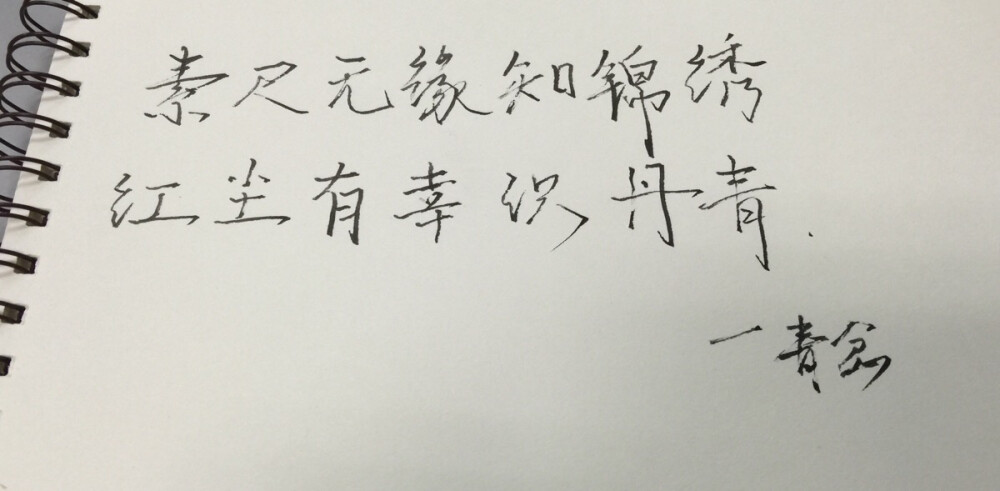 素尺无缘知锦绣
红尘有幸识丹青.
一青念